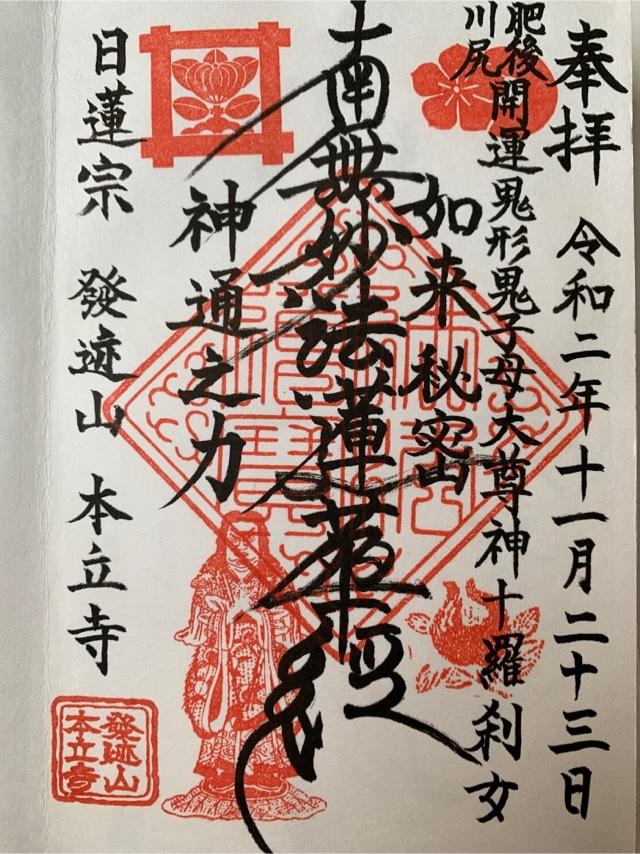 奉拝 令和二年十一月二十三日
肥後
川尻
開運鬼形鬼子母大尊神十羅刹女
如来秘密
南無妙法蓮華経
神通之力
日蓮宗 發迹山 本立寺
發迹山
本立寺